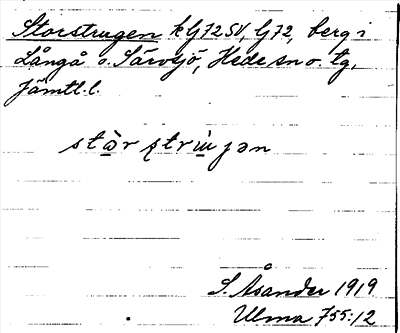 Storstrugen k G72 SV, G72, berg i
Långå o. Särvsjö, Hede sn o. tg,
Jämtl. l.
S. Åsander 1919
Ulma 755:12